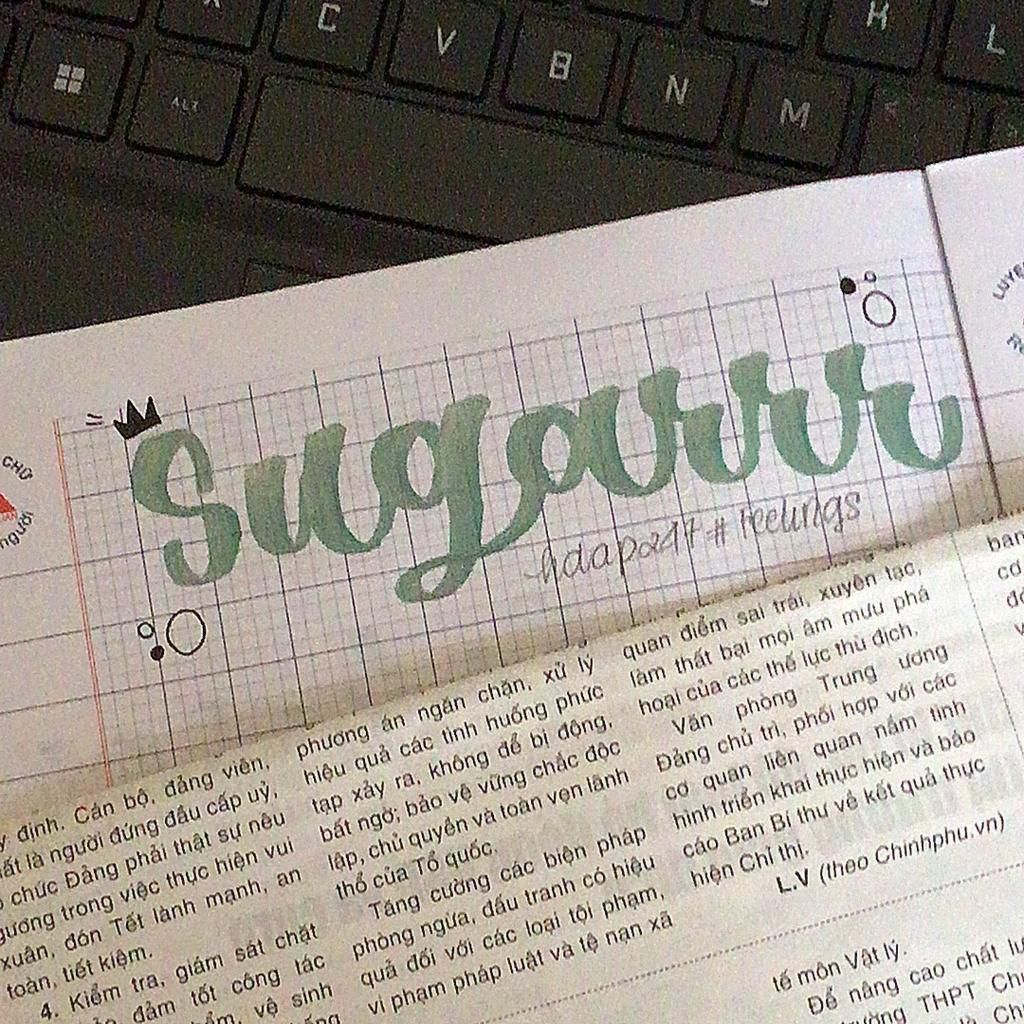 X C V B N M K L
ALT
LUYE
CHỮ
người
Sugarrr
hdapa17 # feelings
định. Cán bộ, đảng viên,
là người đứng đầu cấp uỷ,
chức Đảng phải thật sự nêu
gương trong việc thực hiện vui
xuân, đón Tết lành mạnh, an
toàn, tiết kiệm.
4. Kiểm tra, giám sát chặt
đảm tốt công tác
vệ sinh
phương án ngăn chặn, xử lý
hiệu quả các tình huống phức
tạp xảy ra, không để bị động,
bất ngờ; bảo vệ vững chắc độc
lập, chủ quyền và toàn vẹn lãnh
thổ của Tổ quốc.
Tăng cường các biện pháp
phòng ngừa, đấu tranh có hiệu
quả đối với các loại tội phạm,
vi phạm pháp luật và tệ nạn xã
quan điểm sai trái, xuyên tạc,
làm thất bại mọi âm mưu phá
hoại của các thế lực thù địch.
Văn phòng Trung ương
Đảng chủ trì, phối hợp với các
cơ quan liên quan nắm tình
hình triển khai thực hiện và báo
cáo Ban Bí thư về kết quả thực
hiện Chỉ thị.
L.V (theo Chinhphu.vn)
ban
cơ
tế môn Vật lý.
Để nâng cao chất
trường THPT